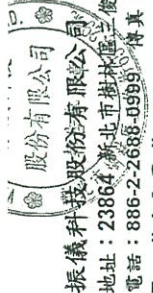 股份有限公司
振儀科技股份有限公司
地址：23864 新北市樹林區三俊
電話：886-2-2688-0999 傳真